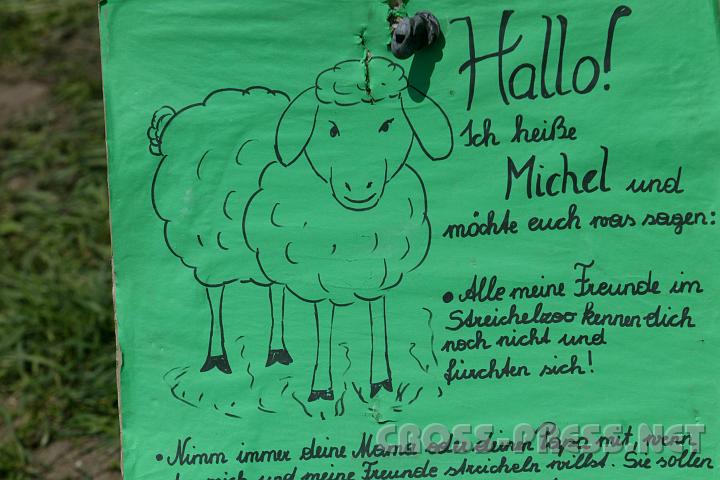 Hallo!
Ich heiße
Michel und
möchte euch was sagen:
• Alle meine Freunde im
Streichelzoo kennen dich
noch nicht und
fürchten sich!
CROSS-PRESS.NET
• Nimm immer deine Mama oder deinen Papa mit, wenn
du mich und meine Freunde streicheln willst. Sie sollen